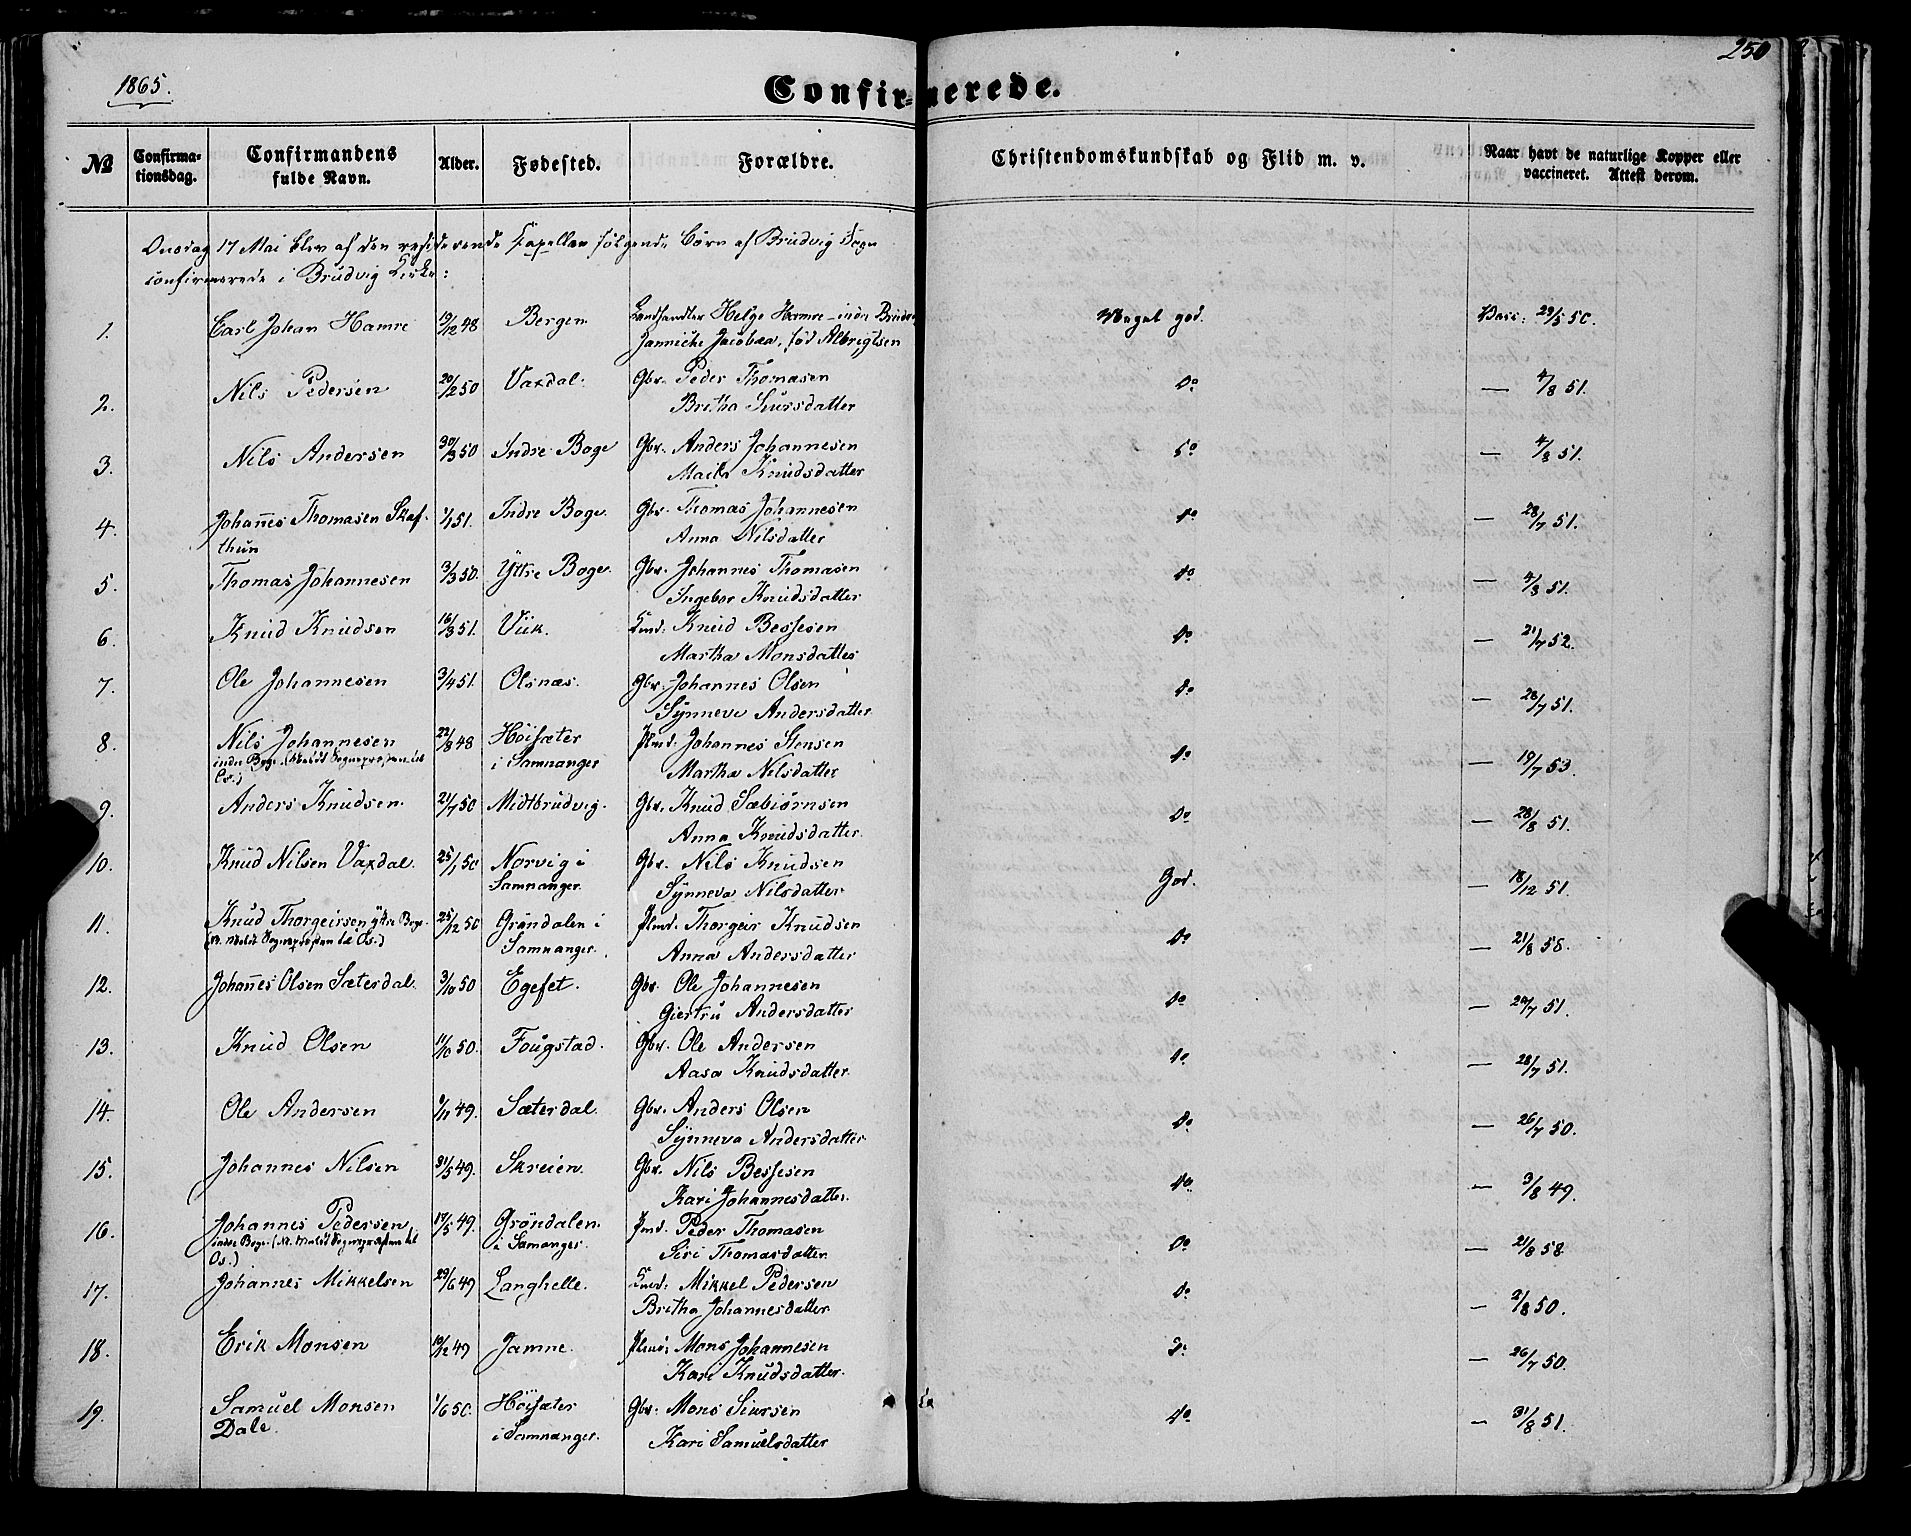 1865.
250
Confirmerede.
No Confirmationsdag. Confirmandens fulde Navn. Alder. Fødested. Forældre. Christendomskundskab og Flid m. v. Naar havt de naturlige Kopper eller vaccineret. Attest derom.
Onsdag 17 Mai blev af den residerende Capellan følgende Børn af Brudvig Sogn
confirmerede i Brudvig Kirke:
1. Carl Johan Hamre 19/12 48 Bergen Landhandler Helge Hamre indre Brudvig Meget god. Vacc: 29/5 50.
Jannicke Jacobæa, fød Albrigtsen
2. Nils Pedersen 20/2 50 Vaxdal. Gbr. Peder Thomasen do — 4/8 51.
Britha Siursdatter
3. Nils Andersen 30/3 50 Indre Boge Gbr. Anders Johannesen do — 4/8 51.
Knudsdatter
4. Johannes Thomasen Skaf- 1/1 51. Indre Boge Gbr. Thomas Johannesen do — 28/7 51.
thun Anna Nilsdatter
5. Thomas Johannesen 3/3 50. Yttre Boge. Gbr. Johannes Thomasen do — 4/8 51.
Ingebor Knudsdatter
6. Knud Knudsen 16/3 51. Viik. Knud Bessesen do — 21/7 52.
Martha Monsdatter
7. Ole Johannesen 3/4 51. Olsnæs. Gbr. Johannes Olsen do — 28/7 51.
Synneve Andersdatter
8. Nils Johannesen 22/8 48 Höisæter Plmd. Johannes Stensen do — 19/7 53.
indre Boge. i Samnanger Martha Nilsdatter
9. Anders Knudsen. 21/7 50 Midtbrudvig. Gbr. Knud Sæbiørnsen do — 28/8 51.
Anna Knudsdatter.
10. Knud Nilsen Vaxdal. 25/1 50 Norvig i Gbr. Nils Knudsen God. — 18/12 51.
Samnanger. Synneva Nilsdatter
11. Knud Thorgeirsen ytre Boge. 25/12 50 Gröndalen i Plmd. Thorgeir Knudsen do — 21/8 58.
Samnanger. Anna Andersdatter
12. Johannes Olsen Sæterdal. 3/10 50 Egeset. Gbr. Ole Johannesen do — 28/7 51.
Giertru Andersdatter
13. Knud Olsen 11/10 50. Fougstad. Gbr. Ole Andersen do — 28/7 51.
Aasa Knudsdatter.
14. Ole Andersen 9/11 49. Sæterdal. Gbr. Anders Olsen do — 26/7 50.
Synneva Andersdatter
15. Johannes Nilsen 31/5 49. Skreien. Gbr. Nils Bessesen do — 3/8 49.
Kari Johannesdatter.
16. Johannes Pedersen, 17/5 49. Gröndalen Peder Thomasen do — 21/8 58.
indre Boge i Samanger. Siri Thomasdatter
Os.)
17. Johannes Mikkelsen 29/6 49 Langhelle. Mikkel Pedersen do — 2/8 50.
Britha Johannesdatter
18. Erik Monsen 19/12 49 Jamne. Mons Johannesen do — 26/7 50.
Kari Knudsdatter.
19. Samuel Monsen 1/6 50. Höisæter Gbr. Mons Siursen do — 31/8 51.
Dale. i Samnanger. Kari Samuelsdatter